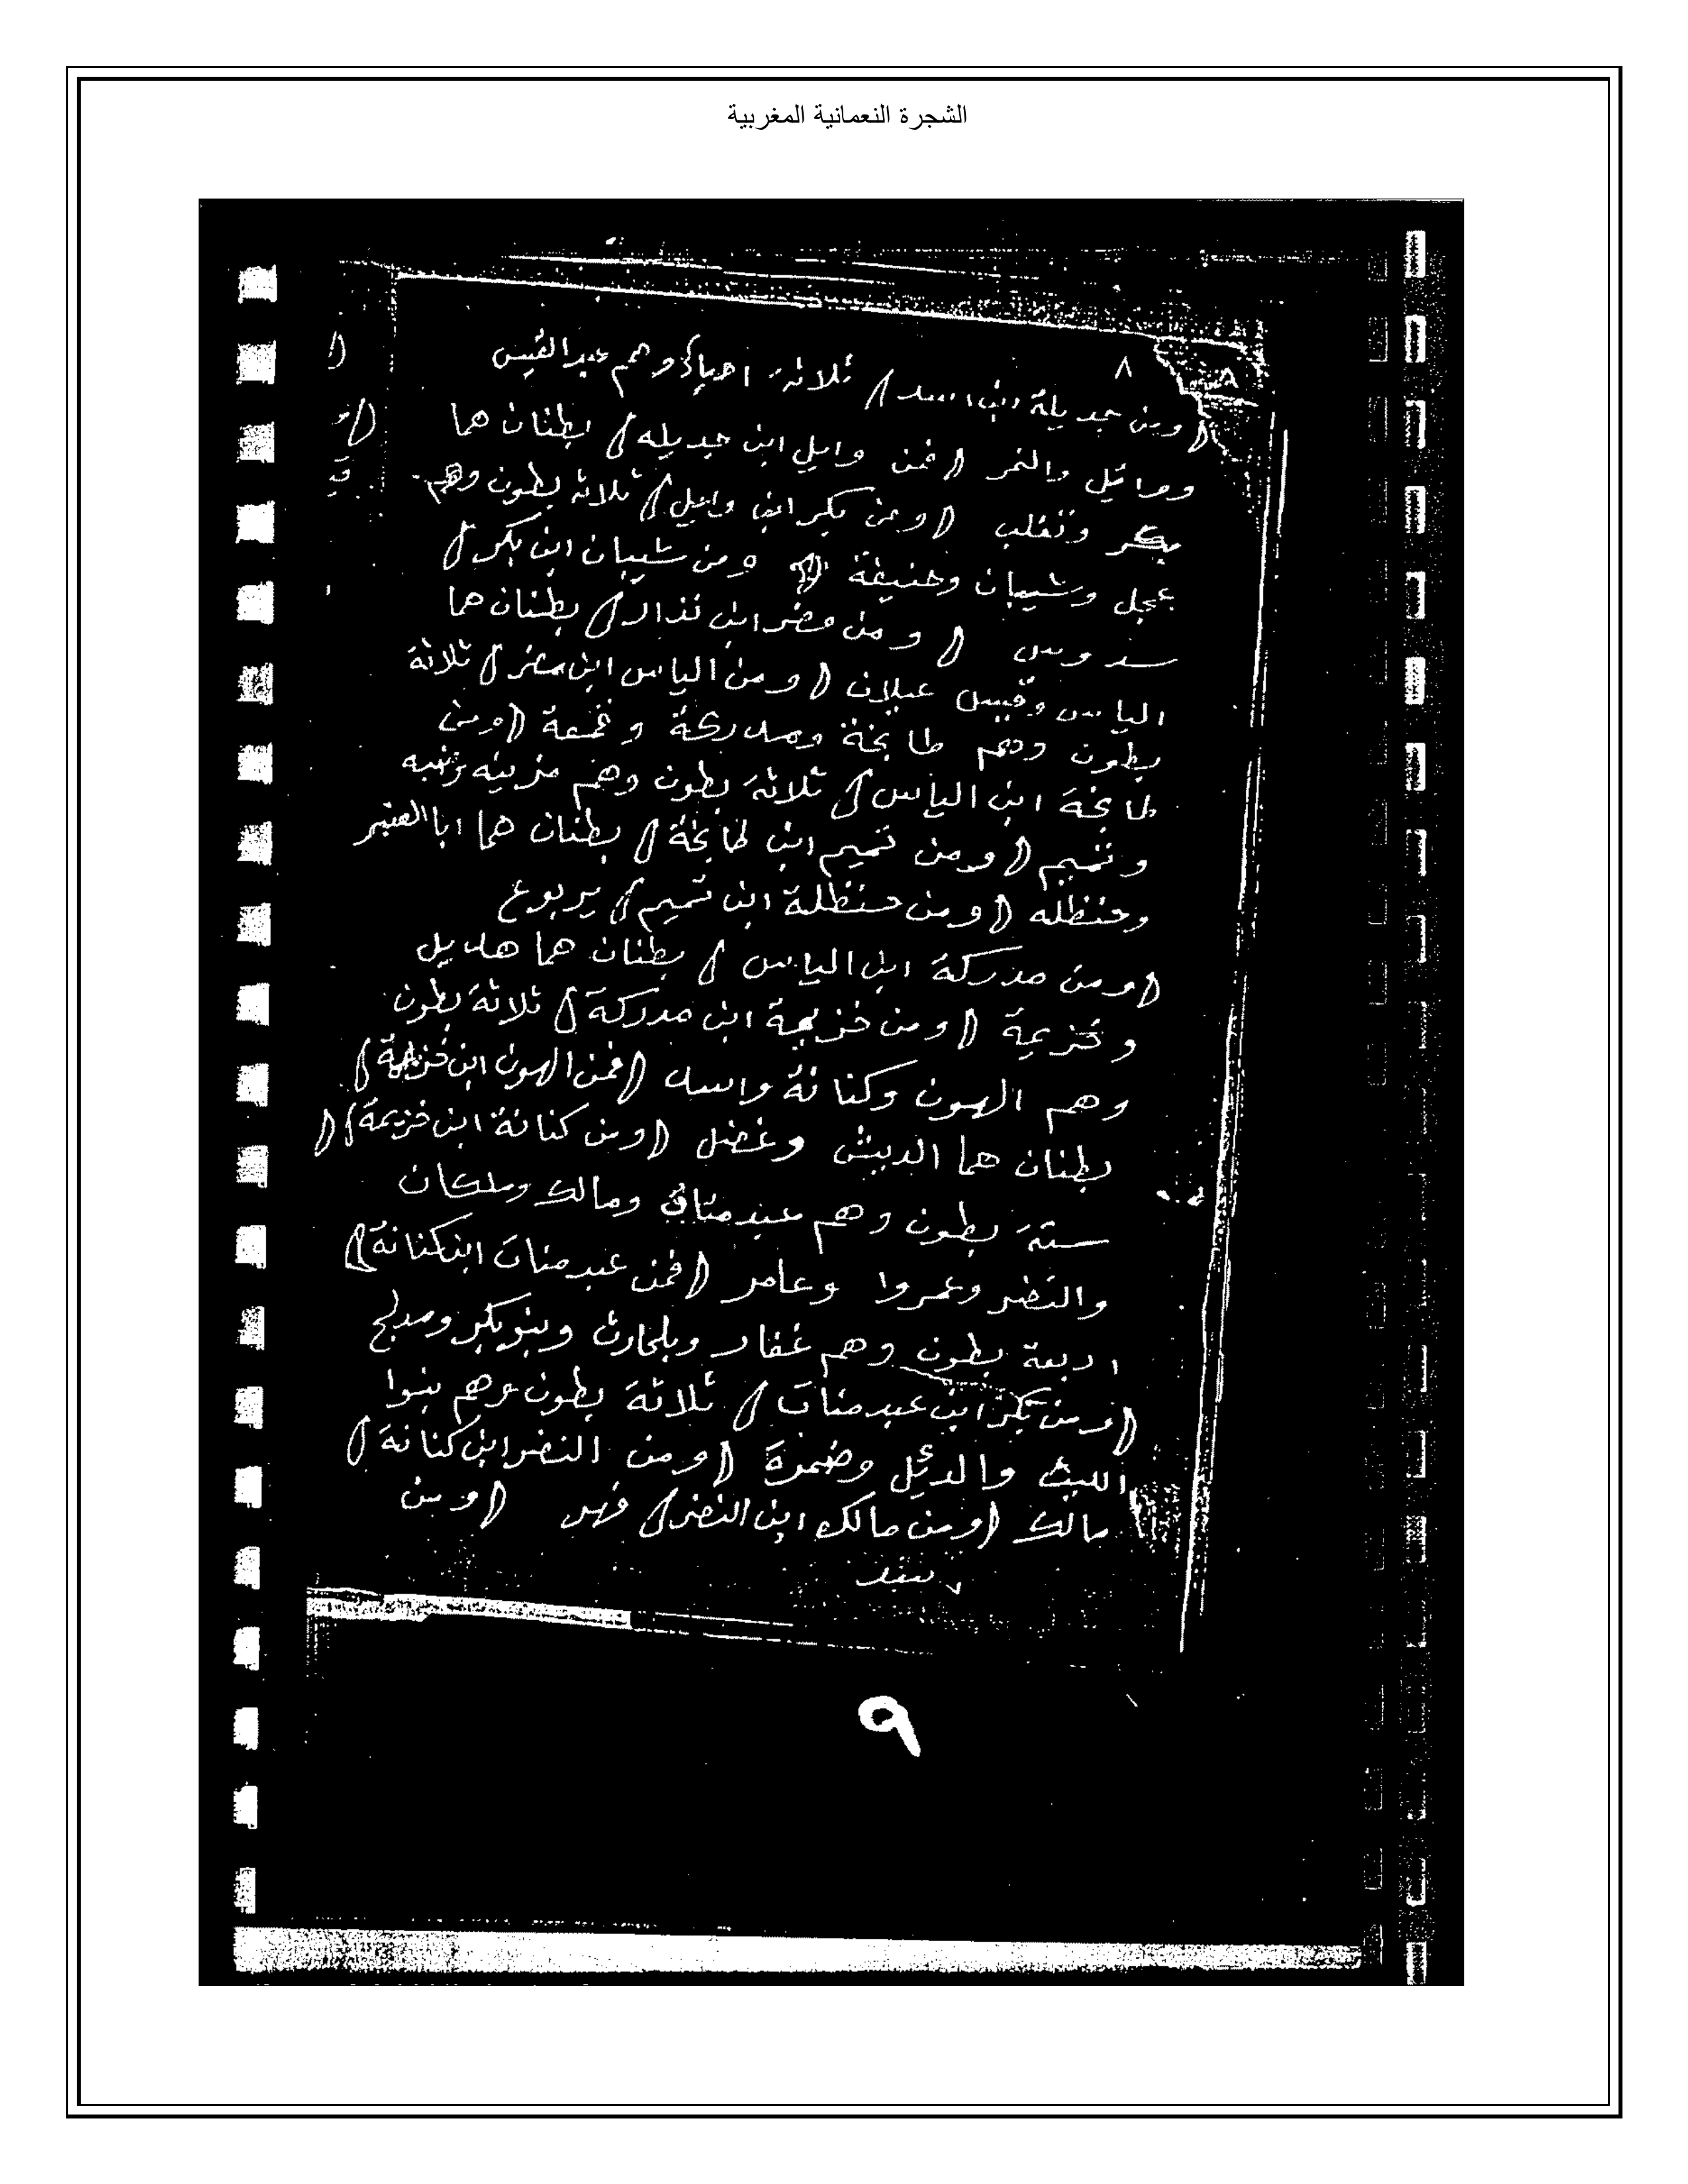 الشجرة النعمانية المغربية
٨
٨
(ومن جديلة ابن اسد) ثلاثة احياء وهم عبد القيس
ووائيل والنمر (فمن وايل ابن جديله) بطنان هما
بكر وتغلب (ومن بكر ابن وايل) ثلاثه بطون وهم
عجل وشيبان وحنيفة ومن شيبان ابن بكر)
سدوس (ومن مضر ابن نذار) بطنان هما
الياس وقيس عيلان (ومن الياس ابن مضر) ثلاثة
بطون وهم طابخة ومدركة وقمعة (ومن
طابخة ابن الياس) ثلاثة بطون وهم مزينه وضبه
وتميم (ومن تميم ابن طابخة) بطنان هما ابا العنبر
وحنظله (ومن حنظلة ابن تميم) يربوع
(ومن مدركة ابن الياس) بطنان هما هديل
وخزيمة (ومن خزيمة ابن مدركة) ثلاثة بطون
وهم الهون وكنانة واسد (فمن الهون ابن خزيمة)
بطنان هما الديش وعضل (ومن كنانة ابن خزيمة)
ستة بطون وهم عبد منات ومالك وملكان
والنضر وعمروا وعامر (فمن عبد منات ابن كنانة)
اربعة بطون وهم غفار وبلحارث وبنو بكر ومدلج
(ومن بكر ابن عبد منات) ثلاثة بطون وهم بنوا
الليث والدئل وضمرة (ومن النضر ابن كنانة)
مالك (ومن مالك ابن النضر) فهر (ومن
٩